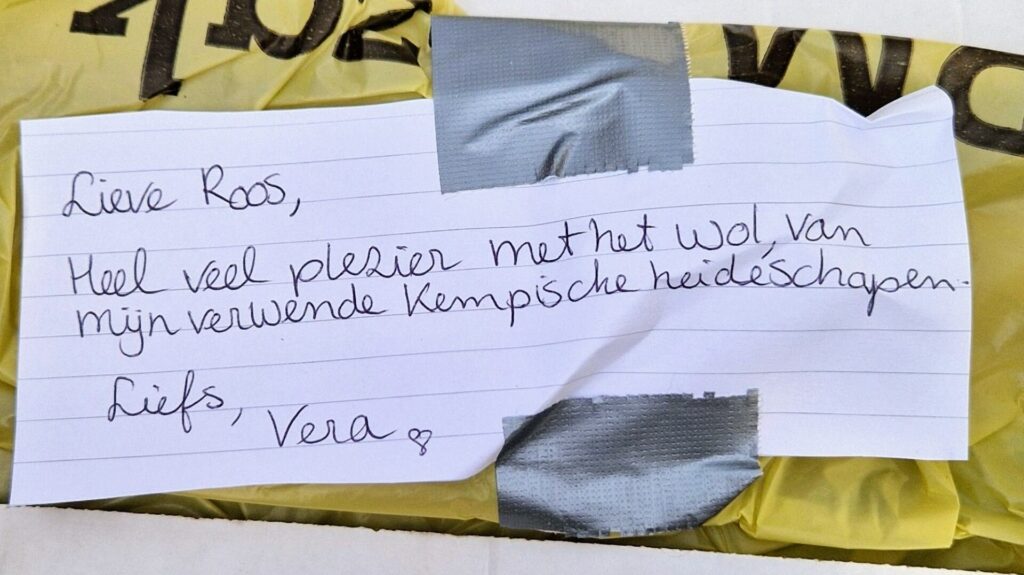 Lieve Roos,
Heel veel plezier met het wol, van
mijn verwende Kempische heideschapen.
Liefs,
Vera